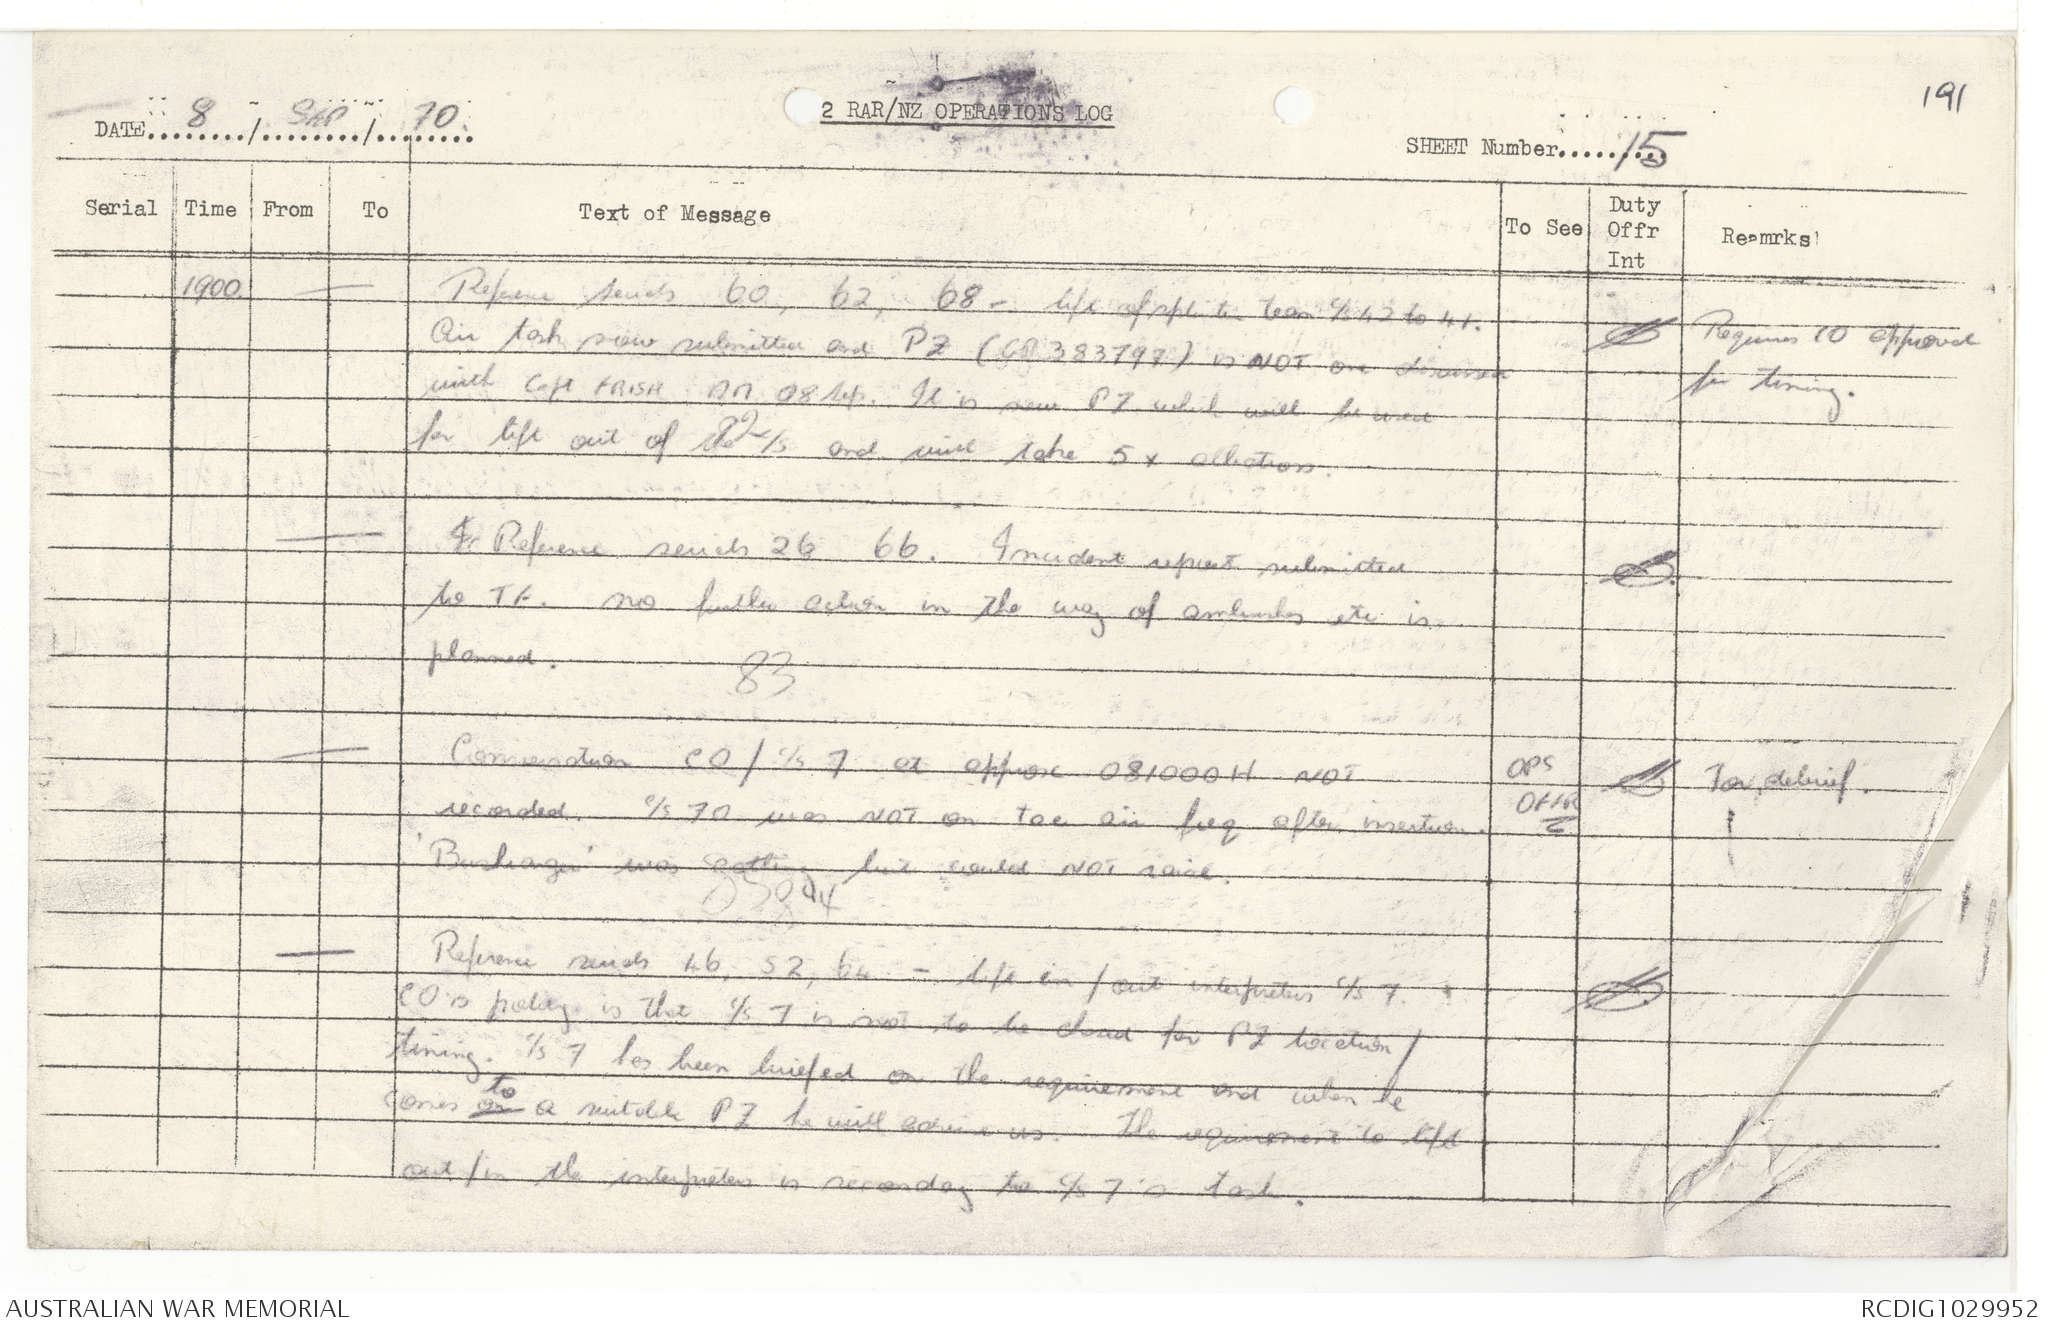 191
2 RAR/NZ OPERATIONS LOG
DATE 8 / SEP / 70
SHEET Number 15
Serial Time From To Text of Message To See Duty Offr Int Reamrks
1900 — Reference serials 60, 62, 68 - lift of splinter team c/s 42 to 41.
Air task now submitted and PZ (GR 383797) is NOT one discussed
with Capt FRISH AM 08 Sep. It is new PZ which will be used
for lift out of c/s and will take 5 x
Requires CO approval
for timing.
— Reference serials 26 66. Incident report submitted
to TF. no further action in the way of ambushes etc is
planned.
83
— Conversation CO / c/s 7 at approx 081000H NOT
recorded. c/s 70 was NOT on tac air freq after insertion.
'Bushranger' was but could NOT raise.
OPS
OFFR
2
For debrief.
— Reference serials 46, 52, 64 - lift in / out interpreters c/s 7.
CO's policy is that c/s 7 is not to be chased for PZ location /
timing. c/s 7 has been briefed on the requirement and when he
comes to a suitable PZ he will advise us. The requirement to lift
out / in the interpreters is secondary to c/s 7's task.
AUSTRALIAN WAR MEMORIAL
RCDIG1029952